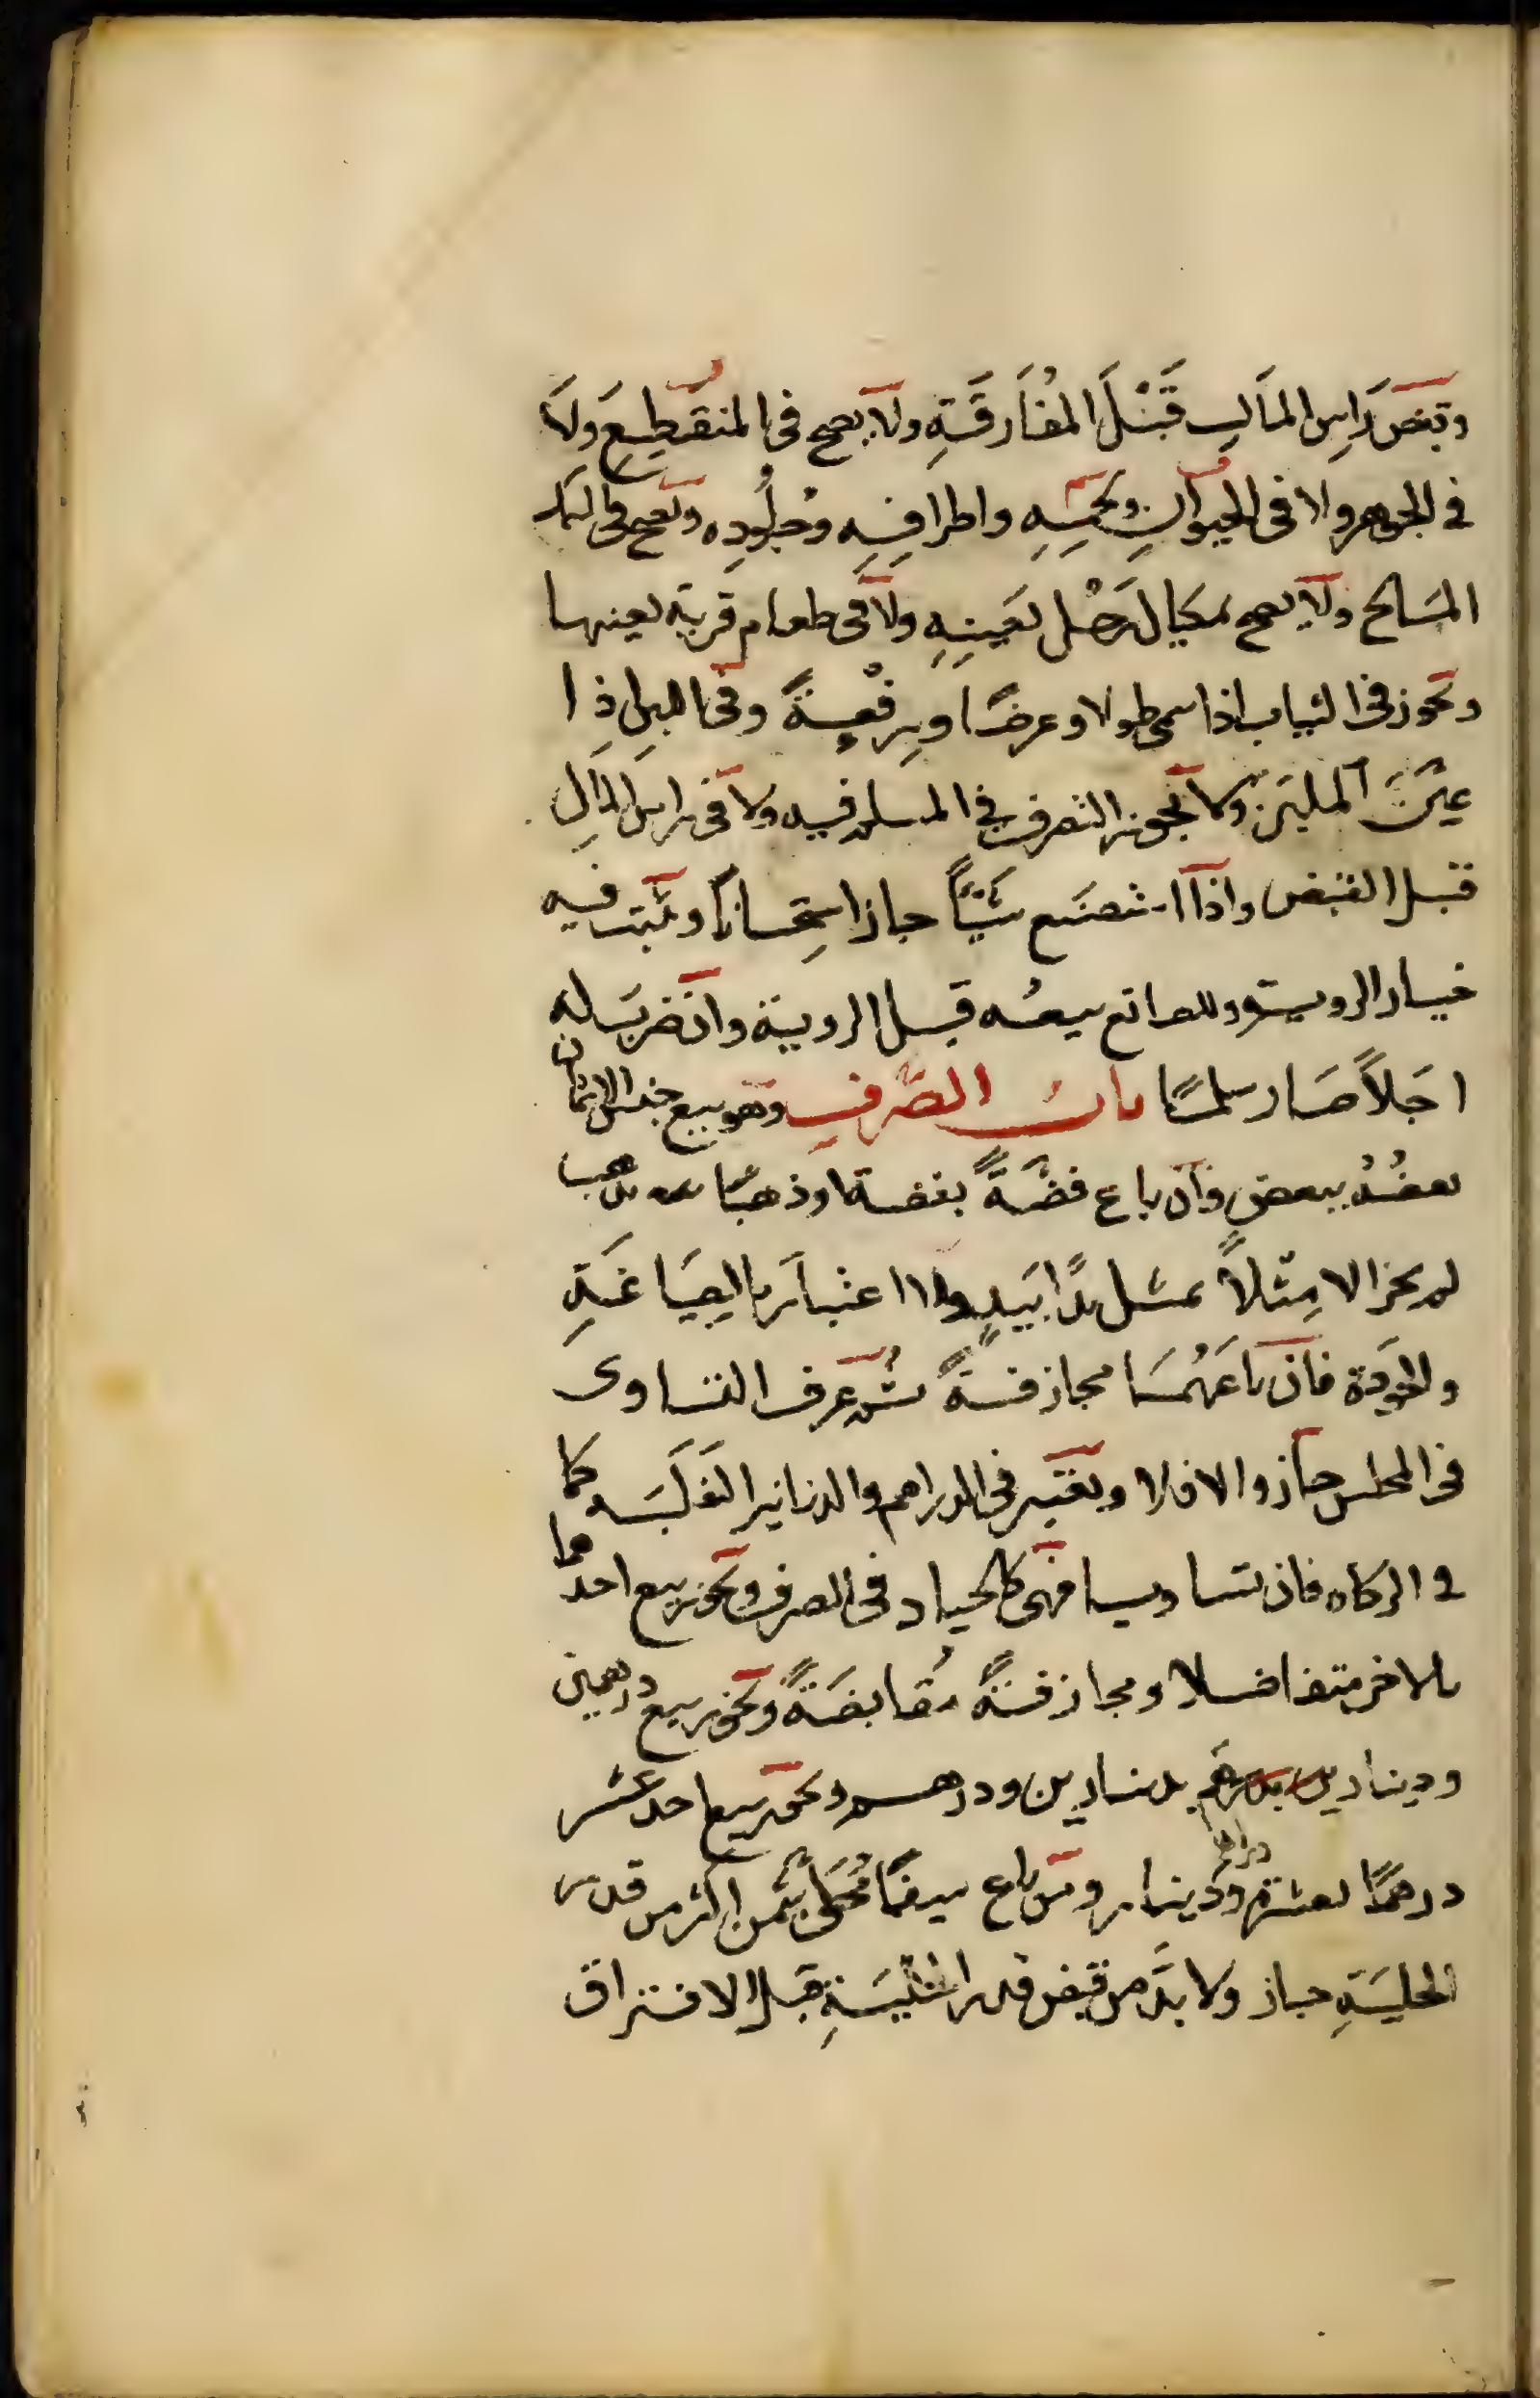 وقبض رَاسِ المَالِ قَبْلَ المُفَارَقَةِ ولا يصح فى المنقَطِعِ وَلَا
فى الجوهر ولا فى الحيوانِ ولحمِهِ واطرافِهِ وجُلُودِه ويصح فى السمك
المَالح ولا يصح بمكيال رَجْل بعَينِهِ ولا فى طعام قرية بعينها
ويجوز فى الثياب اذا سمى طولا وعرضًا ورِقْعةً وفى اللبن اذا
عيّن الملبن ولا يجوز التصرف فى المسلم فيه ولا فى راس المالِ
قبل القبض واذا استصنع شيئًا جاز استِحسانًا ويثبت فيه
خيار الروية وللصانع بيعُه قبل الروية وان ضرب له
اجَلًا صَار سلمًا باب الصَّرفِ وهو بيع جنس الاثمان
بعضُهُ ببعضٍ فان باع فضةً بفضة او ذهبًا بذهب
لم يجز الا مِثلًا بمثل يدًا بَيدٍ ولا اعتبار بالصِيَاغَةِ
والجودة فان باعَهُمَا مجازفةً ثم عرف التساوى
فى المجلس جاز والا فلا ويعتبر فى الدراهم والدنانير الغَلَبَه كما
فى الزكاه فان تساويا فهى كالجياد فى الصرف ويجوز بيع احدهما
بالاخر متفاضلا ومجازفةً مُقابضَةً ويجوز بيع درهمين
ودينارين بدرهم بدينارين ودرهم ويجوز بيع احد عشر
درهمًا بعشرة دراهم ودينار ومن باع سيفًا مُحَلًى بثمن اكثر من قدر
الحليَةِ جاز ولا بدَّ من قبض قدر الحليَةِ قبل الافتراق